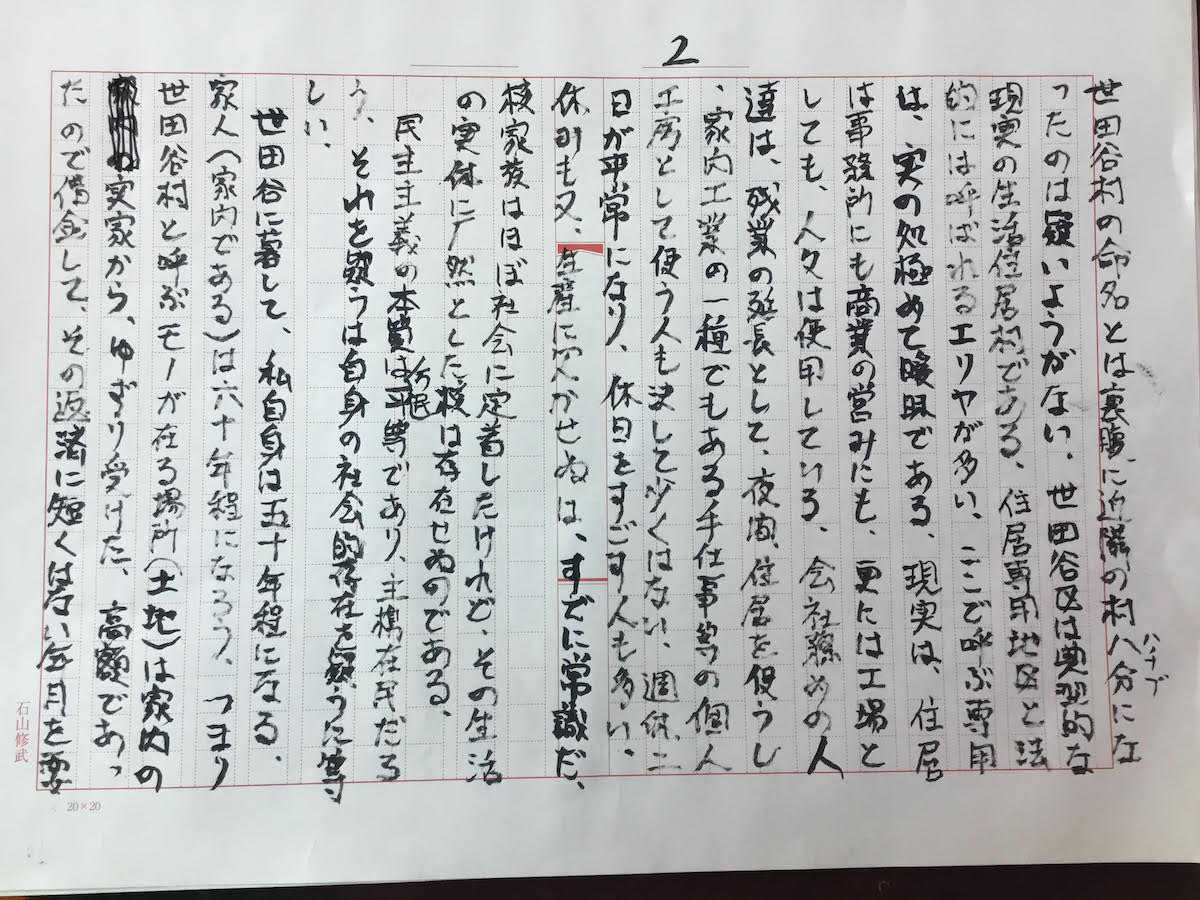 2
世田谷村の命名とは裏腹に近隣の村八分にな
ハチブ
ったのは疑いようがない。世田谷区は典型的な
現実の生活住居村である。住居専用地区と法
的には呼ばれるエリヤが多い。ここで呼ぶ専用
は、実の処極めて曖昧である。現実は、住居
は事務所にも商業の営みにも、更には工場と
しても、人々は使用している。会社勤めの人
達は、残業の延長として、夜間、住居を使うし
、家内工業の一種でもある手仕事等の個人
工房として使う人も決して少くはない。週休二
日が平常になり、休日をすごす人も多い。
休日も又、生産に欠かせぬは、すでに常識だ。
核家族はほぼ社会に定着したけれど、その生活
の実体に厂然とした核は存在せぬのである。
民主主義の本質は平等であり、主権在民だろ
う。それを疑うは自身の社会的存在を疑うに等
しい。
世田谷に暮して、私自身は五十年程になる。
家人(家内である)は六十年程になろう。つまり
世田谷村と呼ぶモノが在る場所(土地)は家内の
実家から、ゆずり受けた。高額であっ
たので借金して、その返済に短くはない年月を要
石山修武
20×20